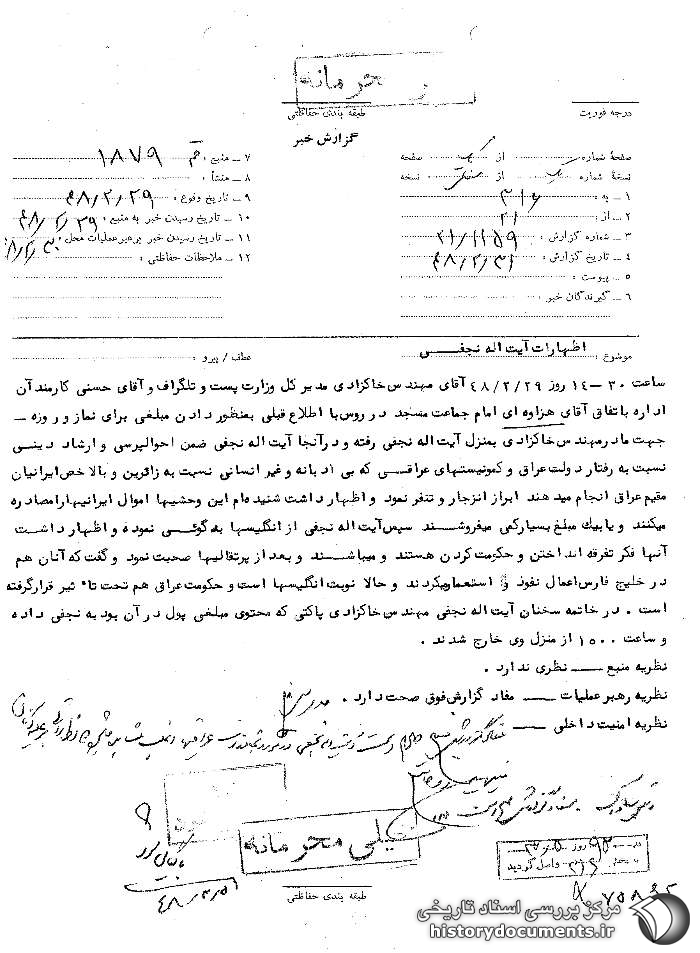 خیلی محرمانه
درجه فوریت
طبقه بندی حفاظتی
گزارش خبر
صفحهٔ شماره یک از صفحه
نسخهٔ شماره یک از نسخه
۱ ــ به : ۳۱۶
۲ ــ از : ۲۱
۳ ــ شماره گزارش :
۴ ــ تاریخ گزارش : ۴۸/۲/۳۱
۵ ــ پیوست :
۶ ــ گیرندگان خبر :
۷ ــ منبع : ۱۸۷۹
۸ ــ منشأ :
۹ ــ تاریخ وقوع : ۴۸/۲/۲۹
۱۰ ــ تاریخ رسیدن خبر به منبع : ۴۸/۲/۲۹
۱۱ ــ تاریخ رسیدن خبر برهبر عملیات محل : ۴۸/۲/۳۰
۱۲ ــ ملاحظات حفاظتی :
موضوع : اظهارات آیت اله نجفی
عطف / پیرو :
ساعت ۳۰-۱۴ روز ۴۸/۲/۲۹ آقای مهندس خاکزادی مدیر کل وزارت پست و تلگراف و آقای حسنی کارمند آن
اداره باتفاق آقای هزاوه ای امام جماعت مسجد در روس با اطلاع قبلی بمنظور دادن مبلغی برای نماز و روزه ــ
جهت مادر مهندس خاکزادی بمنزل آیت اله نجفی رفته و در آنجا آیت اله نجفی ضمن احوالپرسی و ارشاد دینی
نسبت به رفتار دولت عراق و کمونیستهای عراقی که بی ادبانه و غیر انسانی نسبت به زائرین و بالاخص ایرانیان
مقیم عراق انجام میدهند ابراز انزجار و تنفر نمود و اظهار داشت شنیده‌ام این وحشیها اموال ایرانیها را مصادره
میکنند و یا بیک مبلغ بسیار کمی میفروشند سپس آیت اله نجفی از انگلیسها بدگوئی نموده و اظهار داشت
آنها فکر تفرقه انداختن و حکومت کردن هستند و میباشند و بعد از پرتقالیها صحبت نمود و گفت که آنان هم
در خلیج فارس اعمال نفوذ و استعمار میکردند و حالا نوبت انگلیسها است و حکومت عراق هم تحت تاثیر قرار گرفته
است . در خاتمه سخنان آیت اله نجفی مهندس خاکزادی پاکتی که محتوی مبلغی پول در آن بود به نجفی داده
و ساعت ۱۵۰۰ از منزل وی خارج شدند .
نظریه منبع ــ نظری ندارد .
نظریه رهبر عملیات ــ مفاد گزارش فوق صحت دارد .
نظریه امنیت داخلی ــ
خیلی محرمانه
بایگانی شود
طبقه بندی حفاظتی
روز
به بخش ۳۱۶ واصل گردید
مرکز بررسی اسناد تاریخی
historydocuments.ir